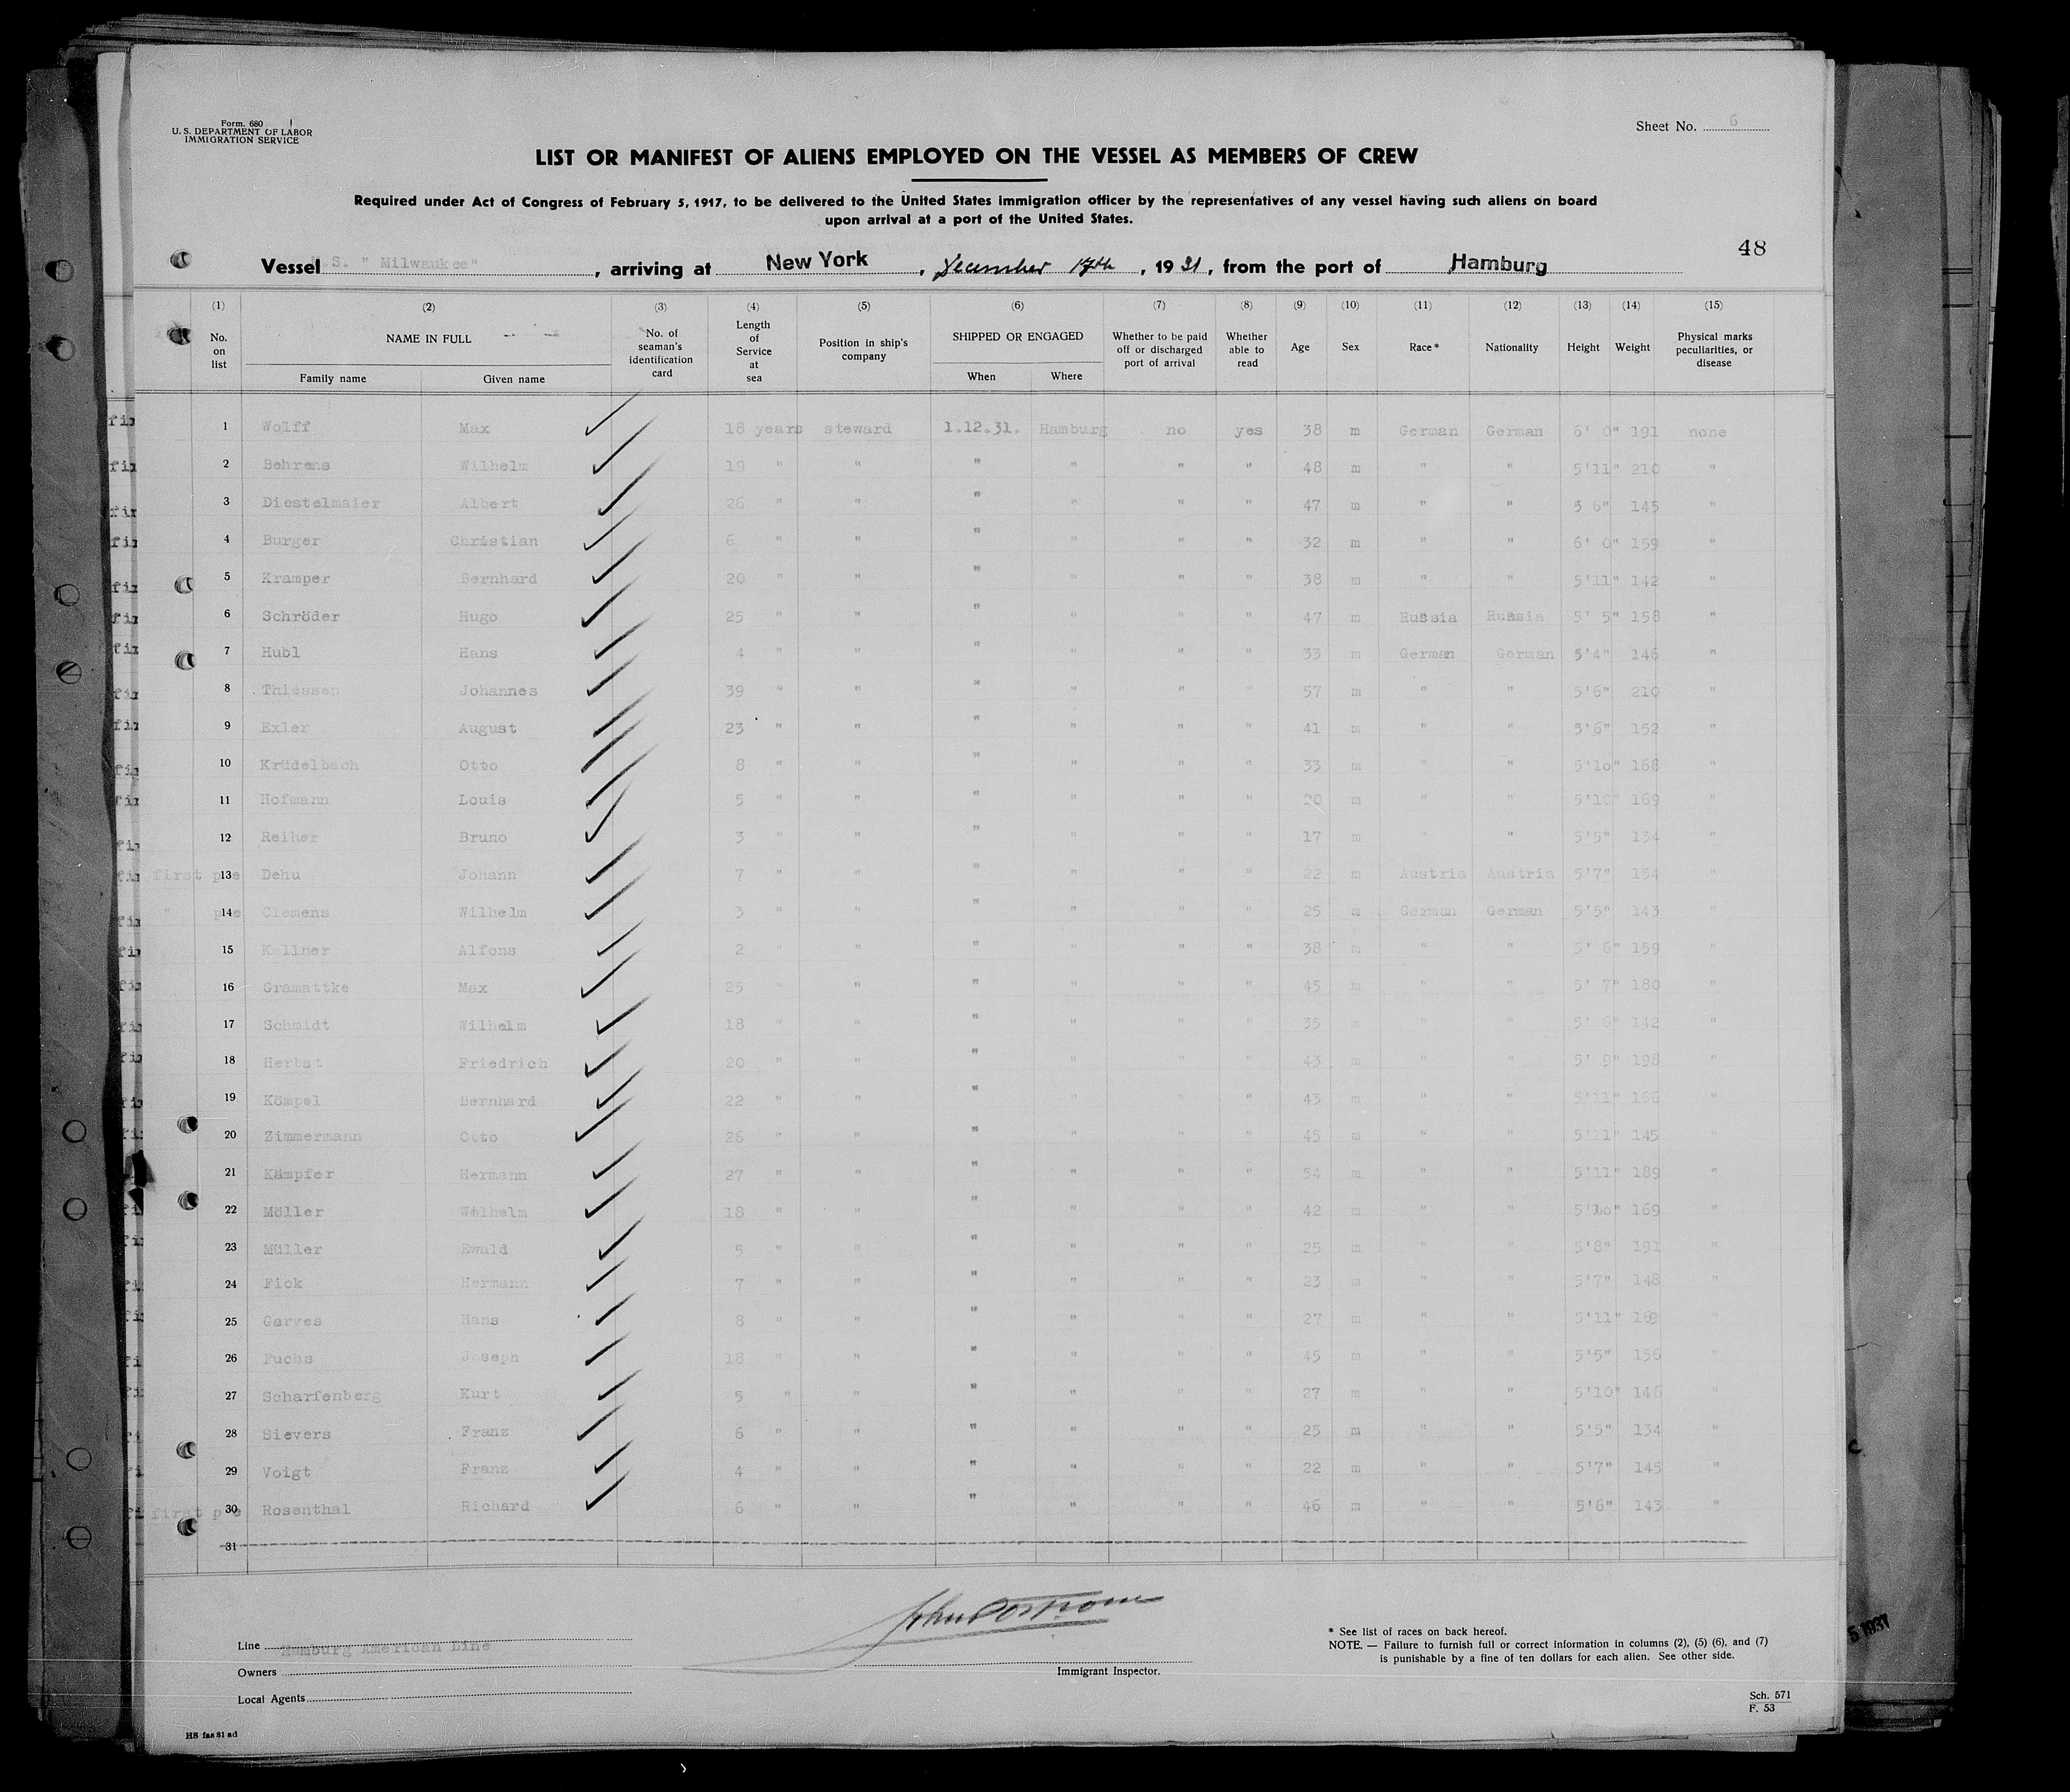 Form. 680
U. S. DEPARTMENT OF LABOR
IMMIGRATION SERVICE
Sheet No. 6
LIST OR MANIFEST OF ALIENS EMPLOYED ON THE VESSEL AS MEMBERS OF CREW
Required under Act of Congress of February 5, 1917, to be delivered to the United States immigration officer by the representatives of any vessel having such aliens on board
upon arrival at a port of the United States.
48
Vessel M.S. " Milwaukee" , arriving at New York , December 17th , 19 31 , from the port of Hamburg
(1) (2) (3) (4) (5) (6) (7) (8) (9) (10) (11) (12) (13) (14) (15)
No. on list NAME IN FULL Family name Given name No. of seaman's identification card Length of Service at sea Position in ship's company SHIPPED OR ENGAGED When Where Whether to be paid off or discharged port of arrival Whether able to read Age Sex Race * Nationality Height Weight Physical marks peculiarities, or disease
1 Wolff Max 18 years steward 1.12.31. Hamburg no yes 38 m German German 6' 0" 191 none
2 Behrens Wilhelm 19 " " " " " " 48 m " " 5'11" 210 "
3 Diestelmaier Albert 26 " " " " " " 47 m " " 5 6" 145 "
4 Burger Christian 6 " " " " " " 32 m " " 6' 0" 159 "
5 Kramper Bernhard 20 " " " " " " 38 m " " 5'11" 142 "
6 Schröder Hugo 25 " " " " " " 47 m Russia Russia 5' 5" 158 "
7 Hubl Hans 4 " " " " " " 33 m German German 5'4" 146 "
8 Thiessen Johannes 39 " " " " " " 57 m " " 5'6" 210 "
9 Exler August 23 " " " " " " 41 m " " 5'6" 152 "
10 Krüdelbach Otto 8 " " " " " " 33 m " " 5'10" 168 "
11 Hofmann Louis 5 " " " " " " 20 m " " 5'10" 169 "
12 Reiher Bruno 3 " " " " " " 17 m " " 5'5" 134 "
13 Dehu Johann 7 " " " " " " 22 m Austria Austria 5'7" 154 "
14 Clemens Wilhelm 3 " " " " " " 25 m German German 5'5" 143 "
15 Kellner Alfons 2 " " " " " " 38 m " " 5' 6" 159 "
16 Gramattke Max 25 " " " " " " 45 m " " 5' 7" 180 "
17 Schmidt Wilhelm 18 " " " " " " 35 m " " 5' 6" 142 "
18 Herbst Friedrich 20 " " " " " " 43 m " " 5' 9" 198 "
19 Kömpel Bernhard 22 " " " " " " 43 m " " 5'11" 166 "
20 Zimmermann Otto 26 " " " " " " 45 m " " 5'11" 145 "
21 Kämpfer Hermann 27 " " " " " " 54 m " " 5'11" 189 "
22 Möller Wilhelm 18 " " " " " " 42 m " " 5'10" 169 "
23 Müller Ewald 5 " " " " " " 25 m " " 5'8" 191 "
24 Fick Hermann 7 " " " " " " 23 m " " 5'7" 148 "
25 Garves Hans 8 " " " " " " 27 m " " 5'11" 169 "
26 Fuchs Joseph 18 " " " " " " 45 m " " 5'5" 156 "
27 Scharfenberg Kurt 5 " " " " " " 27 m " " 5'10" 146 "
28 Sievers Franz 6 " " " " " " 25 m " " 5'5" 134 "
29 Voigt Franz 4 " " " " " " 22 m " " 5'7" 145 "
30 Rosenthal Richard 6 " " " " " " 46 m " " 5'6" 143 "
31
Line Hamburg American Line
Owners
Local Agents
Immigrant Inspector.
* See list of races on back hereof.
NOTE. — Failure to furnish full or correct information in columns (2), (5) (6), and (7)
is punishable by a fine of ten dollars for each alien. See other side.
Sch. 571
F. 53
H8 fas 81 ad